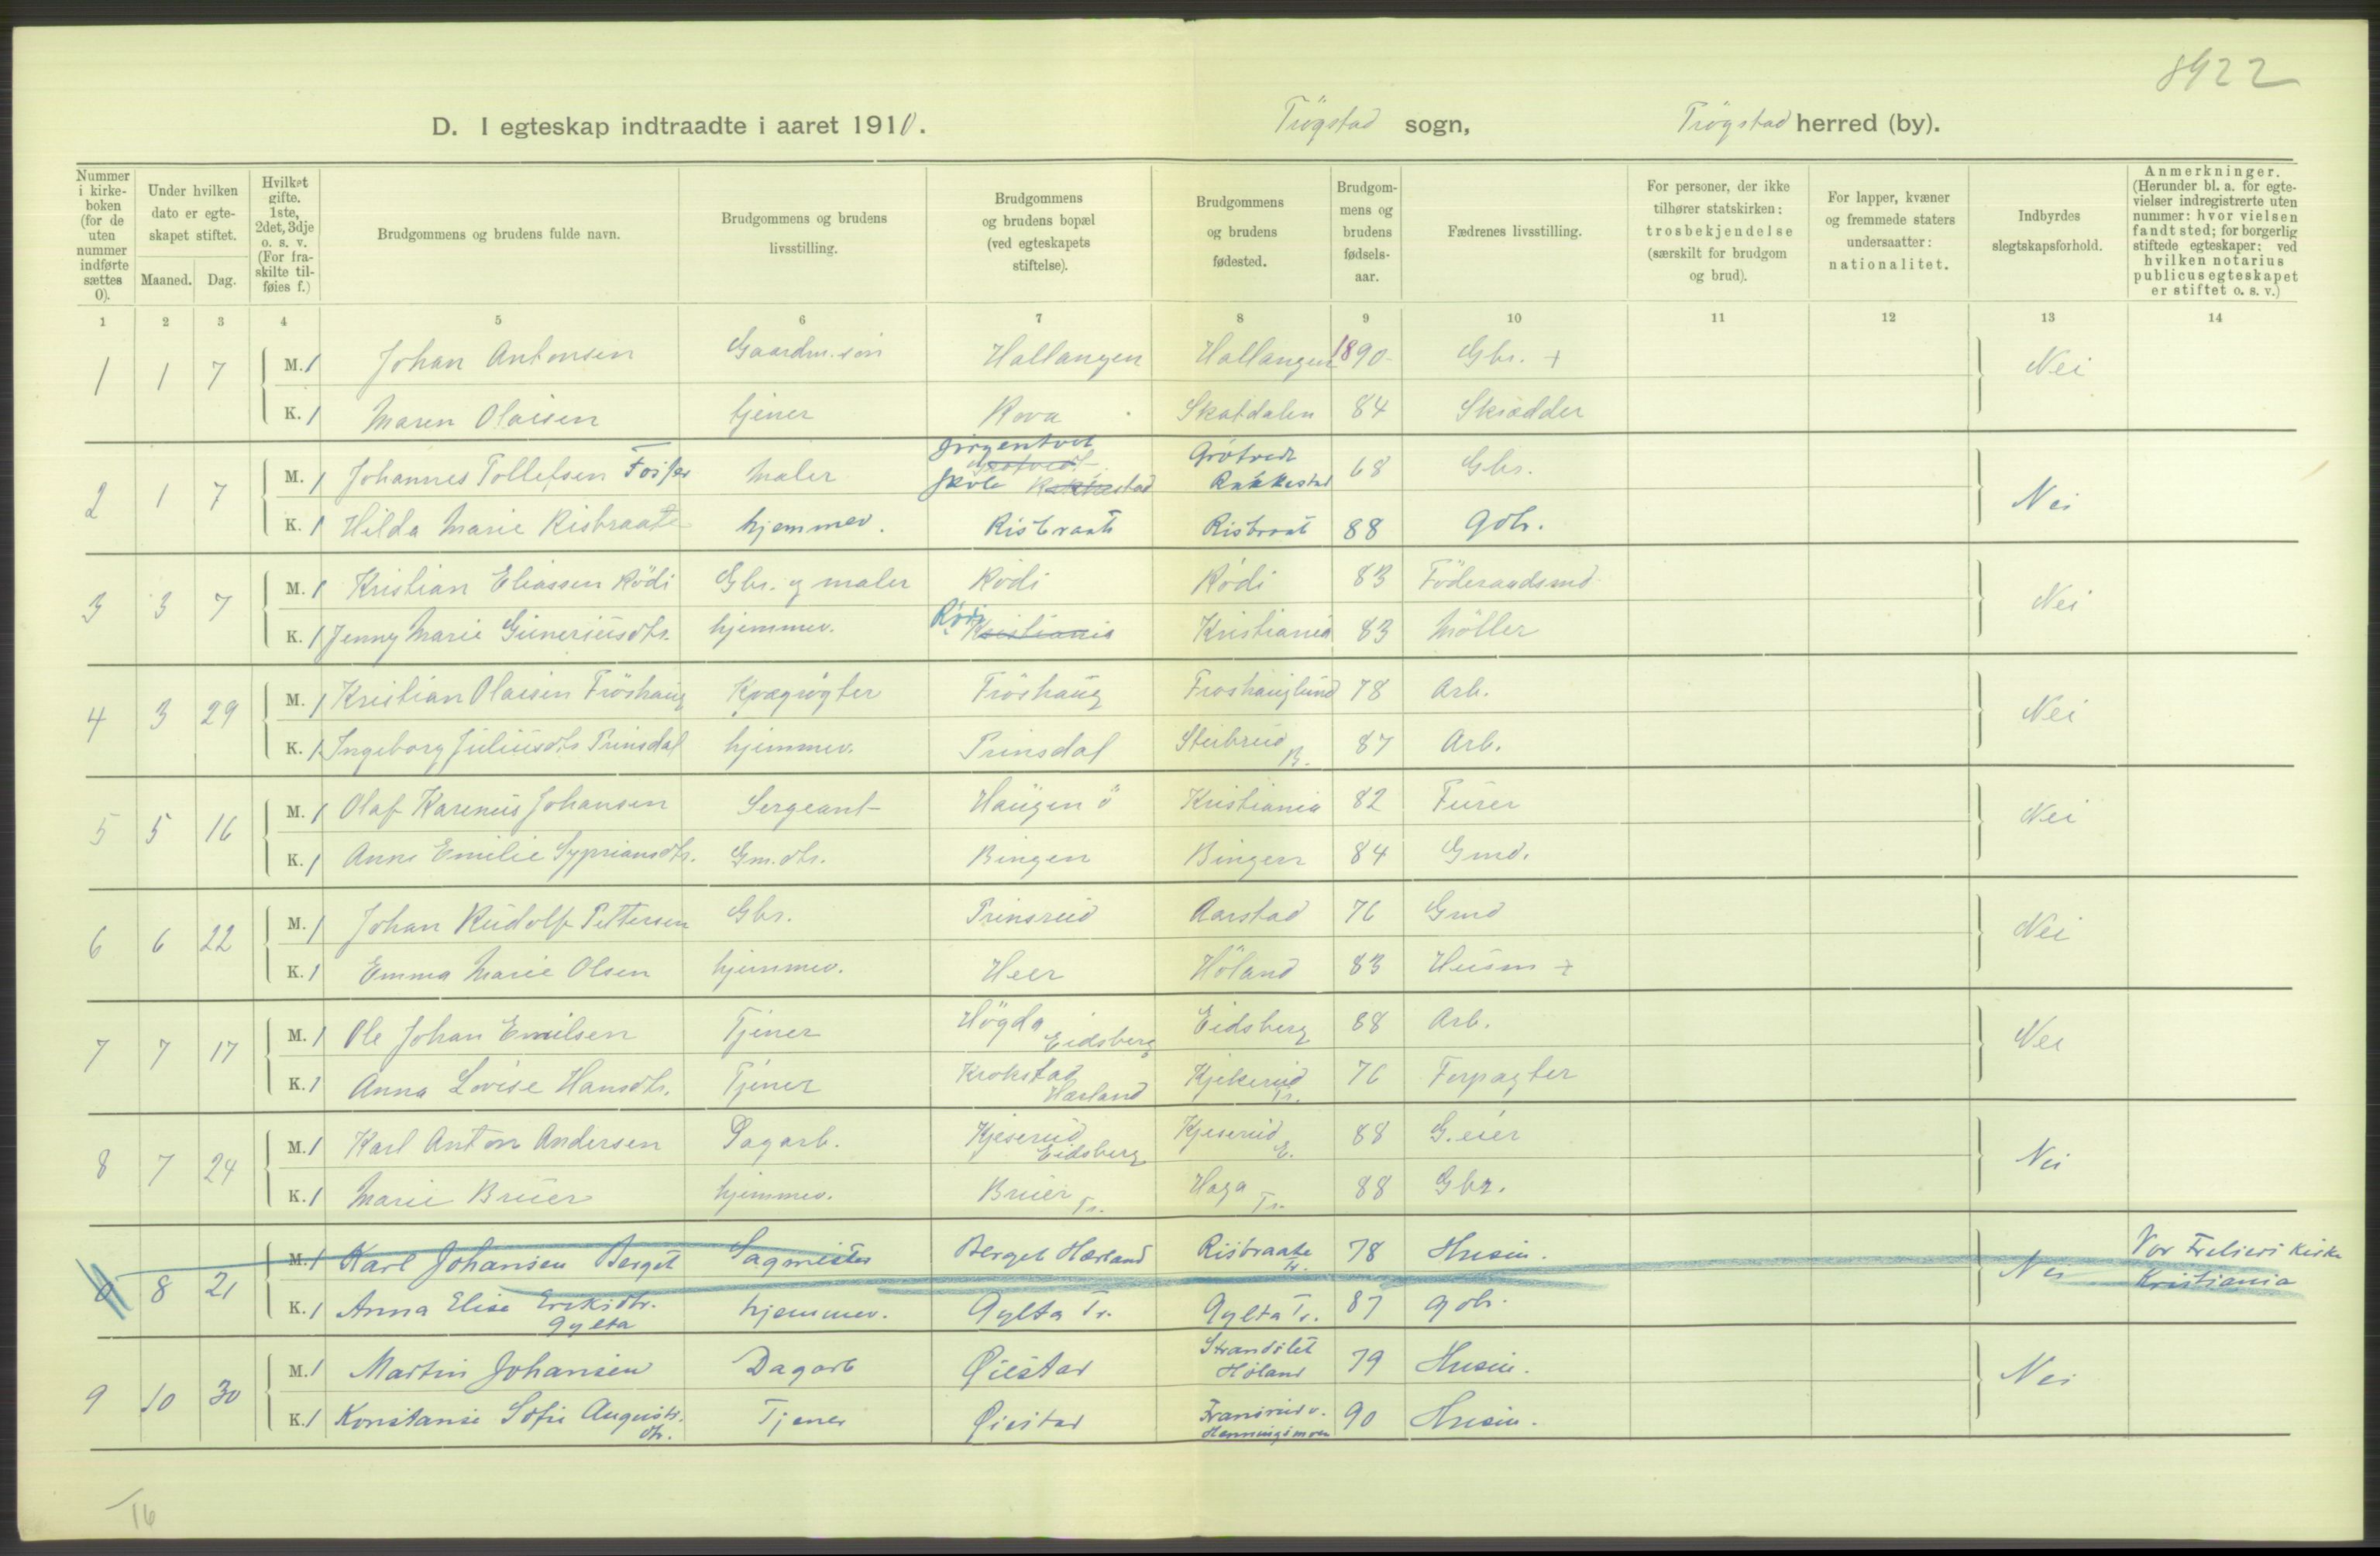 8922
D. I egteskap indtraadte i aaret 1910. Trögstad sogn, Trögstad herred (by).
Nummer i kirkeboken (for de uten nummer indførte sættes 0).
Under hvilken dato er egteskapet stiftet.
Maaned. Dag.
Hvilket gifte. 1ste, 2det, 3dje o. s. v. (For fraskilte tilføies f.)
Brudgommens og brudens fulde navn.
Brudgommens og brudens livsstilling.
Brudgommens og brudens bopæl (ved egteskapets stiftelse).
Brudgommens og brudens fødested.
Brudgommens og brudens fødselsaar.
Fædrenes livsstilling.
For personer, der ikke tilhører statskirken: trosbekjendelse (særskilt for brudgom og brud).
For lapper, kvæner og fremmede staters undersaatter: nationalitet.
Indbyrdes slegtskapsforhold.
Anmerkninger. (Herunder bl. a. for egtevielser indregistrerte uten nummer: hvor vielsen fandt sted; for borgerlig stiftede egteskaper: ved hvilken notarius publicus egteskapet er stiftet o. s. v.)
1 2 3 4 5 6 7 8 9 10 11 12 13 14
1 1 7 M. 1 Johan Antonsen Gaardm. sön Hallangen Hallangen 1890 Gbr. + Nei
K. 1 Maren Olaisen tjener Rova Skotdalen 84 Skrædder
2 1 7 M. 1 Johannes Tollefsen Maler Skole Grötvedt Rakkestad 68 Gbr. Nei
K. 1 Hilda Marie Risbraate hjemmev. Risbraate Risbraate 88 gbr.
3 3 7 M. 1 Kristian Eliassen Rödi Gbr. og maler Rödi Rödi 83 Föderaadsmd. Nei
K. 1 Jenny Marie Guneriusdtr. hjemmev. Rödi Kristiania Kristiania 83 Möller
4 3 29 M. 1 Kristian Olaisen Fröshaug Kvægrögter Fröshaug Froshauglund 78 Arb. Nei
K. 1 Ingeborg Juliusdtr Prinsdal hjemmev. Prinsdal 87 Arb.
5 5 16 M. 1 Olaf Karenius Johansen Sergeant Haugen ö Kristiania 82 Furer Nei
K. 1 Anne Emilie Sypriansdtr. Gm. dtr. Bingen Bingen 84 Gmd.
6 6 22 M. 1 Johan Rudolf Pettersen Gbr. Prinsrud Aarstad 76 Gmd Nei
K. 1 Emma Marie Olsen hjemmev. Heer Höland 83 Husm +
7 7 17 M. 1 Ole Johan Emilsen Tjener Högda Eidsberg Eidsberg 88 Arb. Nei
K. 1 Anna Lovise Hansdtr. Tjener Krokstad Hærland Kjekerud Tr. 76 Forpagter
8 7 24 M. 1 Karl Anton Andersen Dagarb. Kjeserud Eidsberg Kjeserud E. 88 G. eier Nei
K. 1 Marie Bruer hjemmev. Bruer Tr. Haga Tr. 88 Gbr.
0 8 21 M. 1 Karl Johansen Berget Sagmester Berget Hærland Risbraate Tr. 78 Husm. Nei Vor Frelsers Kirke Kristiania
K. 1 Anna Elise Eriksdtr. Gylta hjemmev. Gylta Tr. Gylta Tr. 87 gbr.
9 10 30 M. 1 Martin Johansen Dagarb Øiestad Höland 79 Husm. Nei
K. 1 Konstanse Sofie Augustsdtr. Tjener Øiestad 90 Husm.
16